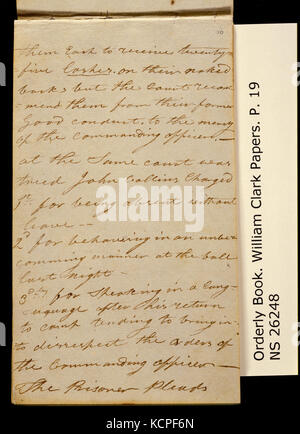 them Each to receive twenty-
five Lashes on their naked
back, but the Court recom
mend them from their former
Good conduct, to the mercy
of the commanding officer,-
at the Same court was
tried John Collins Charged
1st for being absent without
leave --
2d for behaveing in an unbe-
comming manner at the ball
last night -
3rdly for Speaking in a lang-
uage after his return
to camp tending to bring in-
to disrespect the orders of
the Commanding officer -
The Prisoner Pleads
Orderly Book. William Clark Papers. P. 19
NS 26248
alamy
Image ID: KCPF6N
www.alamy.com